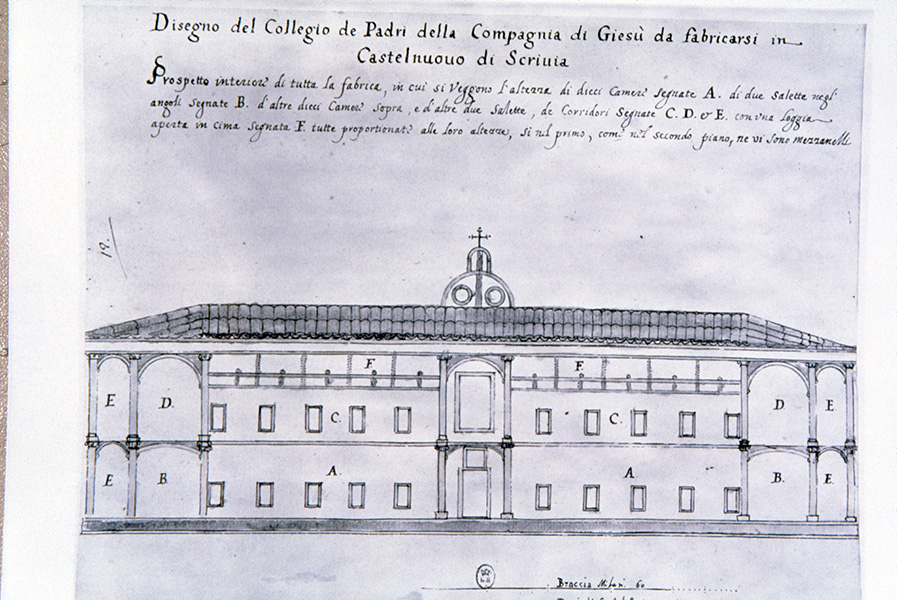 Disegno del Collegio de Padri della Compagnia di Giesù da fabricarsi in
Castelnuouo di Scriuia
Prospetto interiore di tutta la fabrica, in cui si veggono l'altezza di dieci Camere segnate A. di due salette negli
angoli segnate B. d'altre dieci Camere sopra, e d'altre due salette, de Corridori segnate C. D. & E. con una loggia
aperta in cima segnata F. tutte proportionate alle loro altezze, si nel primo, come nel secondo piano, ne vi sono mezzanelli
19.
F. F.
E D. C. C. D E
E B. A. A B. E.
Braccia Milani 60